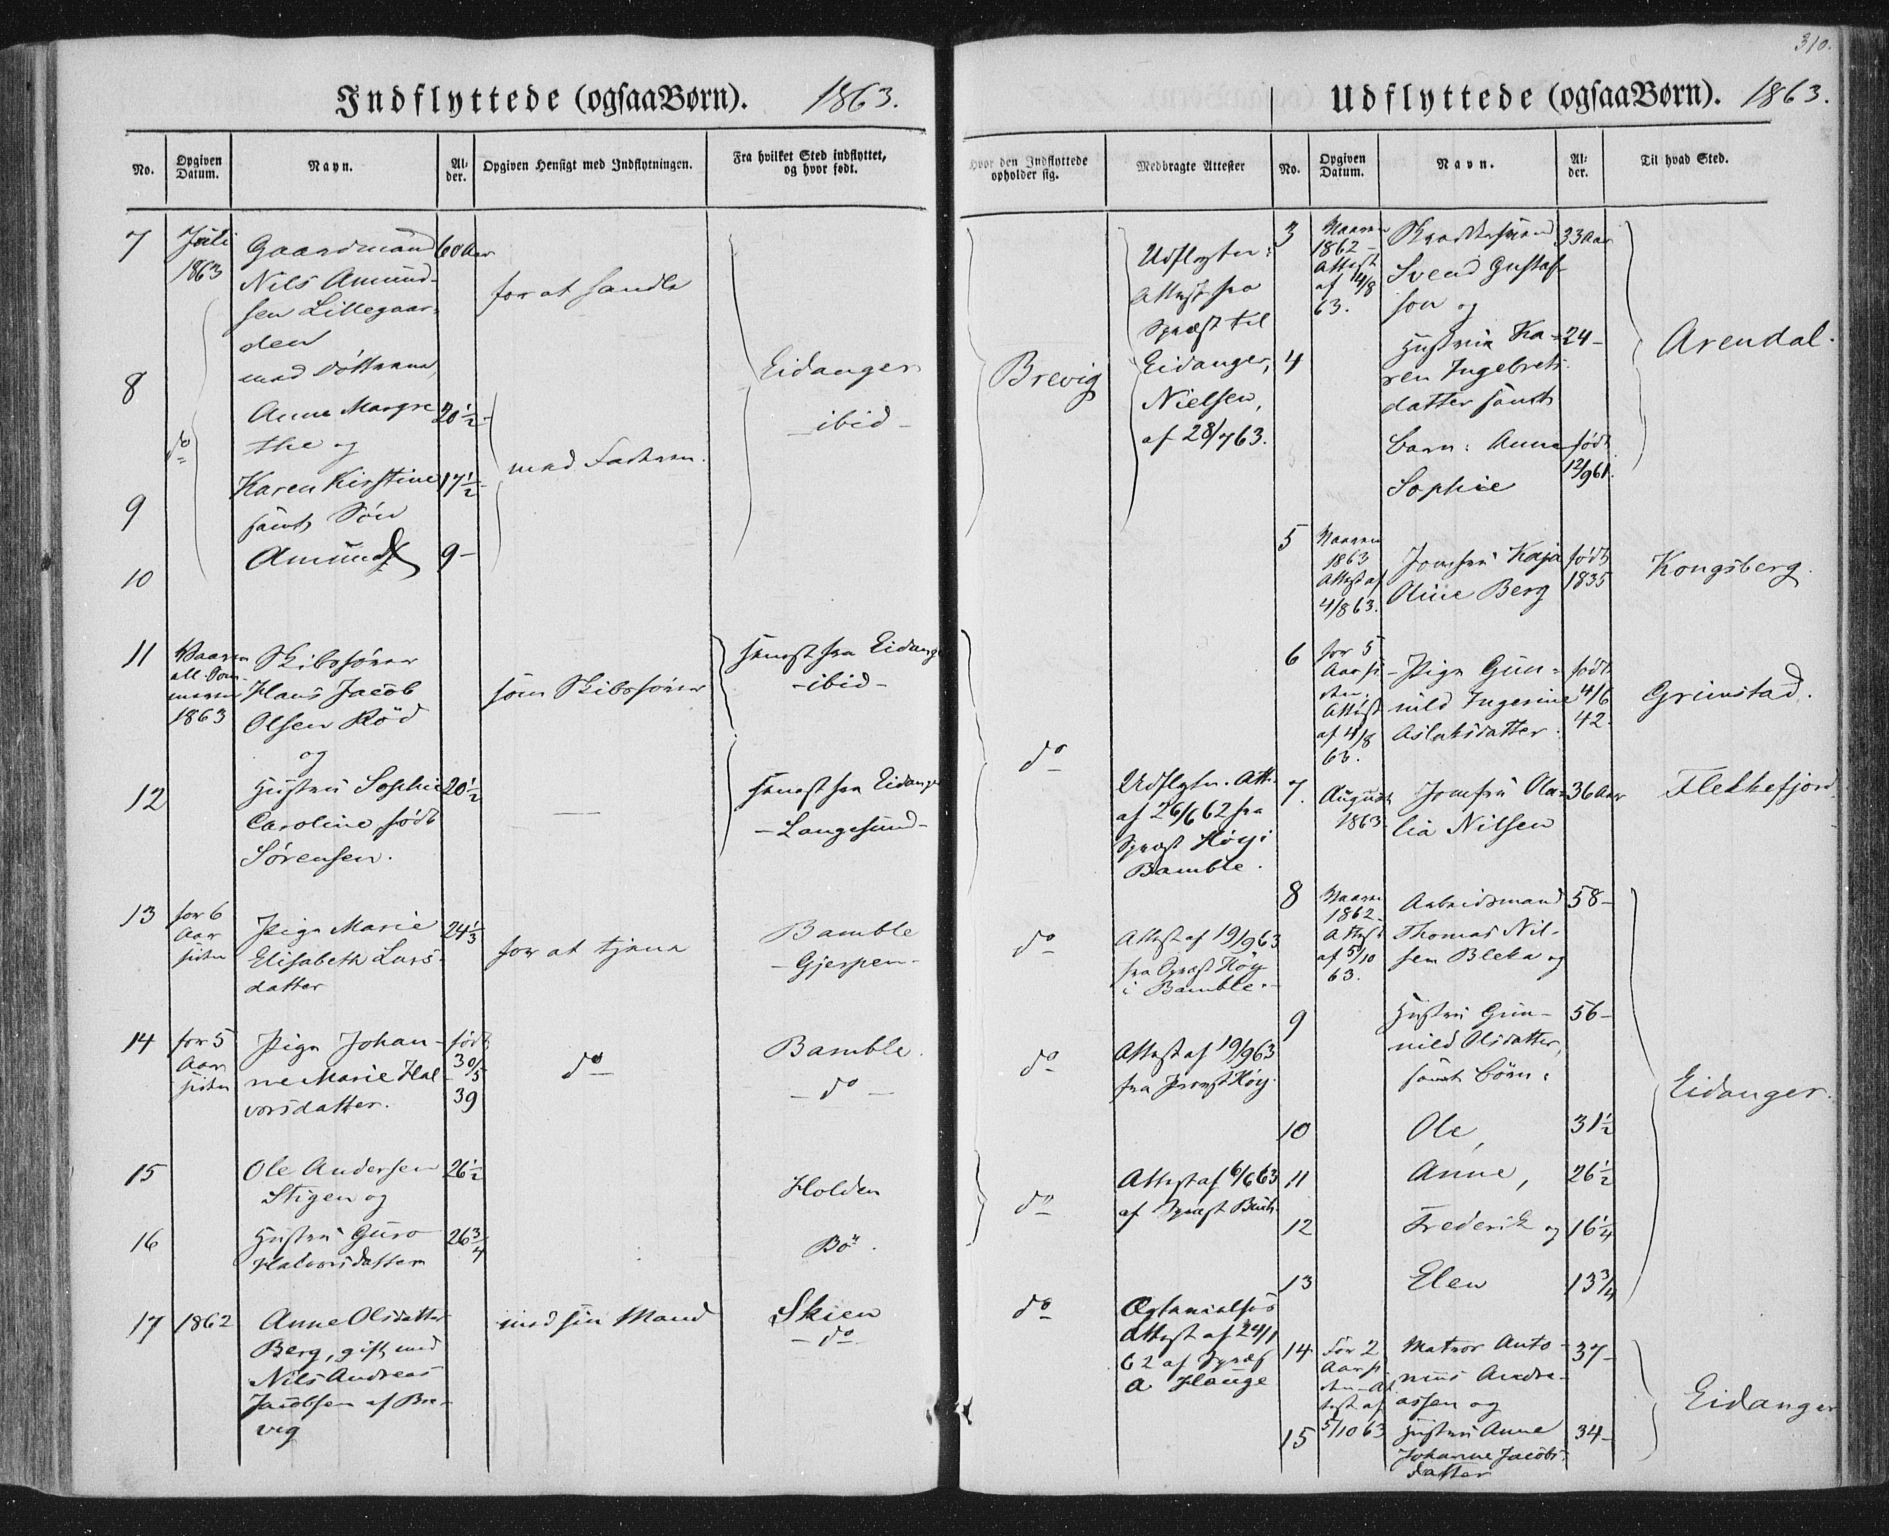 310.
Indflyttede (ogsaa Børn). 1863.
No.
Opgiven Datum.
Navn.
Al-
der.
Opgiven Hensigt med Indflytningen.
Fra hvilket Sted indflyttet,
og hvor født.
Hvor den Indflyttede
opholder sig.
Medbragte Attester
7
Juli
1863
Gaardmand
Nils Amund-
sen Lillegaar-
den
med Døttrene,
60 Aar
for at handle
Eidanger
-ibid-
Brevig
Udflytn:
Attest fra
Spræst til
Eidanger,
Nielsen,
af 28/7 63.
8
do
Anne Margre
the og
20½-
med Faderen.
9
Karen Kirstine
samt Søn
17½-
10
Amund
9-
11
Vaaren
1863
Skibsfører
Hans Jacob
Olsen Rød
og
som Skibsfører
senest fra Eidang
-ibid-
do
12
Hustru Sophie
Caroline, født
Sørensen.
20½
senest fra Eidanger
-Langesund-
Udflytn. Att.
af 26/6 62 fra
Spræst Höyi
Bamble.
13
for 6
Aar
siden
Pige Marie
Elisabeth Lars
datter
24⅓
for at tjene
Bamble
-Gjerpen-
do
Attest af 19/9 63
fra Spræst Höy
i Bamble.-
14
for 5
Aar
siden
Pige Johan-
ne Marie Hal
vorsdatter.
født
30/5
39
do
Bamble.
-do-
do
Attest af 19/9 63
fra Præst Höy.
15
Ole Andersen
Stigen og
26½
Holden
do
Attest af 6/6 63
af Spræst
16
Hustru Guro
Halvorsdatter
26¾
Bö.
17
1862
Anne Olsdatter
Berg, gift med
Nils Andreas
Jacobsen af Bre-
vig
med sin Mand
Skien
-do-
do
Attest af 24/1
62 af Spræst
a Hauge
Udflyttede (ogsaa Børn). 1863.
No.
Opgiven
Datum.
Navn.
Al-
der.
Til hvad Sted.
3
Vaaren
1862-
Attest
af 14/8
63.
Svend Gustaf-
son og
33 Aar
Arendal.
4
Hustru Ka-
ren Ingebrets-
datter samt
24-
Barn: Anne
Sophie
født
12/9 61.
5
Vaaren
1863
Attest af
4/8 63.
Jomfru Kaja
Oline Berg
født
1835
Kongsberg.
6
for 5
Aar si-
den.
Attest
af 4/8
63.
Pige Gun-
nild Ingerine
Aslaksdatter.
født
4/6
42.
Grimstad.
7.
August
1863
Jomfru Ola-
lia Nilsen
36 Aar
Flekkefjord.
8
Vaaren
1862-
Attest
af 5/10
63.
Arbeidsmand
Thomas Nil-
sen Bleka og
58-
Eidanger.
9
Hustru Gun-
nild Olsdatter,
samt Børn:
56-
10
Ole,
31½
11
Anne,
26½
12
Frederik og
16¼
13
Elen
13¾
14
For 2
Aar si-
den-At
test af
5/10 63
Matros Anto-
nius Andre-
assen og
37-
Eidanger
15
Hustru Anne
Johanne Jacobs-
datter
34-